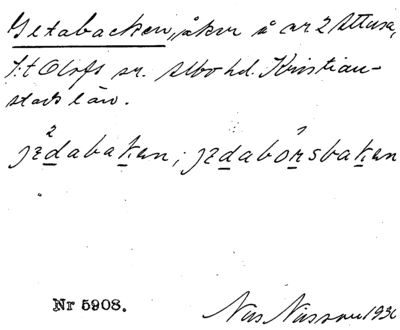 Getabacken, åker å nr 2 Attusa,
S:t Olofs sn. Albo hd. Kristian-
stads län.
jedabaken; jedabörsbaken
Nr 5908.
Nils Nilsson 1930